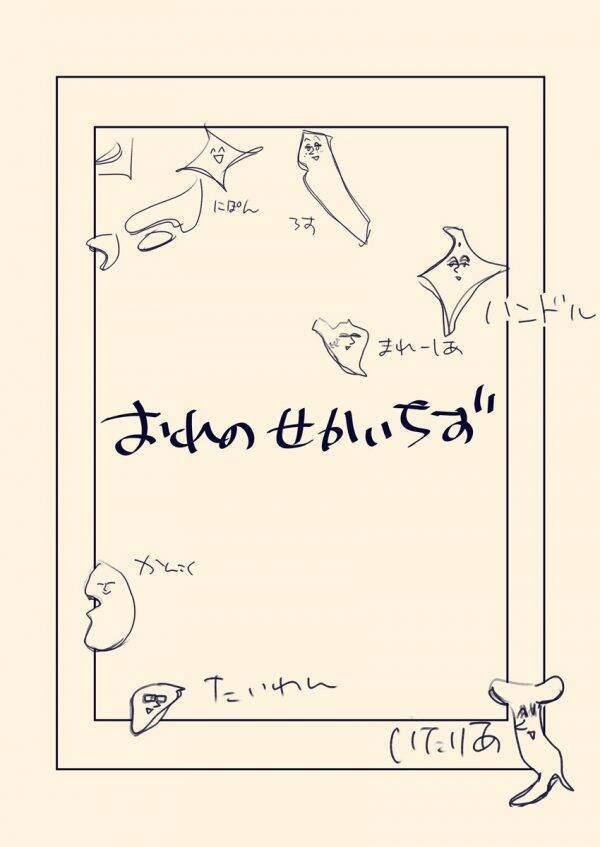 にぽん
ろす
ハンドル
まれーしあ
おれの せかいちず
かんこく
たいわん
いたりあ